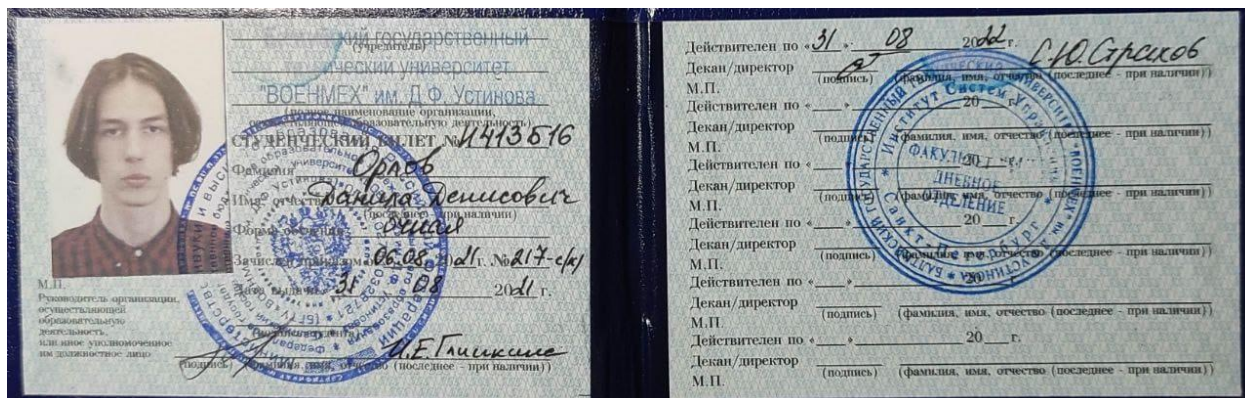 государственный
(учредитель)
технический университет
"ВОЕНМЕХ" им. Д.Ф. Устинова
(полное наименование организации,
осуществляющей образовательную деятельность)
СТУДЕНЧЕСКИЙ БИЛЕТ № И413Б16
Фамилия Орлов
Имя, отчество Данила Денисович
(последнее - при наличии)
Форма обучения очная
Зачислен приказом от 06.08.2021 г. № 217-с(к)
Дата выдачи 31 08 2021 г.
М.П.
Руководитель организации,
осуществляющей
образовательную
деятельность,
или иное уполномоченное
им должностное лицо
(подпись) (фамилия, имя, отчество (последнее - при наличии))
Действителен по «31» 08 2022 г.
Декан/директор С.Ю. Страхов
(подпись) (фамилия, имя, отчество (последнее - при наличии))
М.П.
Действителен по «___» 20___г.
Декан/директор
(подпись) (фамилия, имя, отчество (последнее - при наличии))
М.П.
Действителен по «___» 20___г.
Декан/директор
(подпись) (фамилия, имя, отчество (последнее - при наличии))
М.П.
Действителен по «___» 20___г.
Декан/директор
(подпись) (фамилия, имя, отчество (последнее - при наличии))
М.П.
Действителен по «___» 20___г.
Декан/директор
(подпись) (фамилия, имя, отчество (последнее - при наличии))
М.П.
Действителен по «___» 20___г.
Декан/директор
(подпись) (фамилия, имя, отчество (последнее - при наличии))
М.П.
ФАКУЛЬТЕТ
ДНЕВНОЕ
ОТДЕЛЕНИЕ
Санкт-Петербург